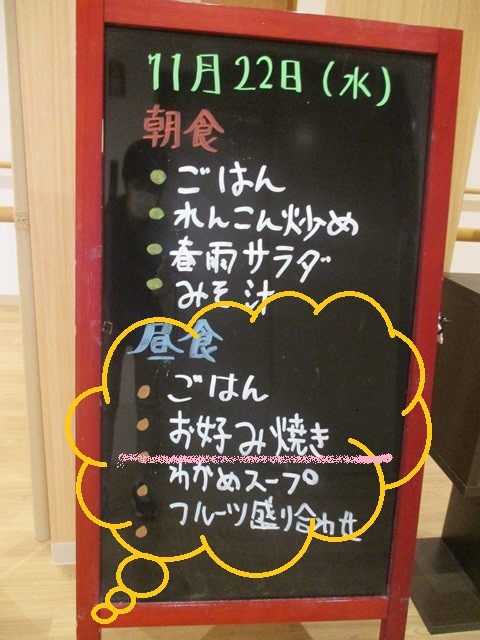 11月22日(水)
朝食
ごはん
れんこん炒め
春雨サラダ
みそ汁
昼食
ごはん
お好み焼き
わかめスープ
フルーツ盛り合わせ